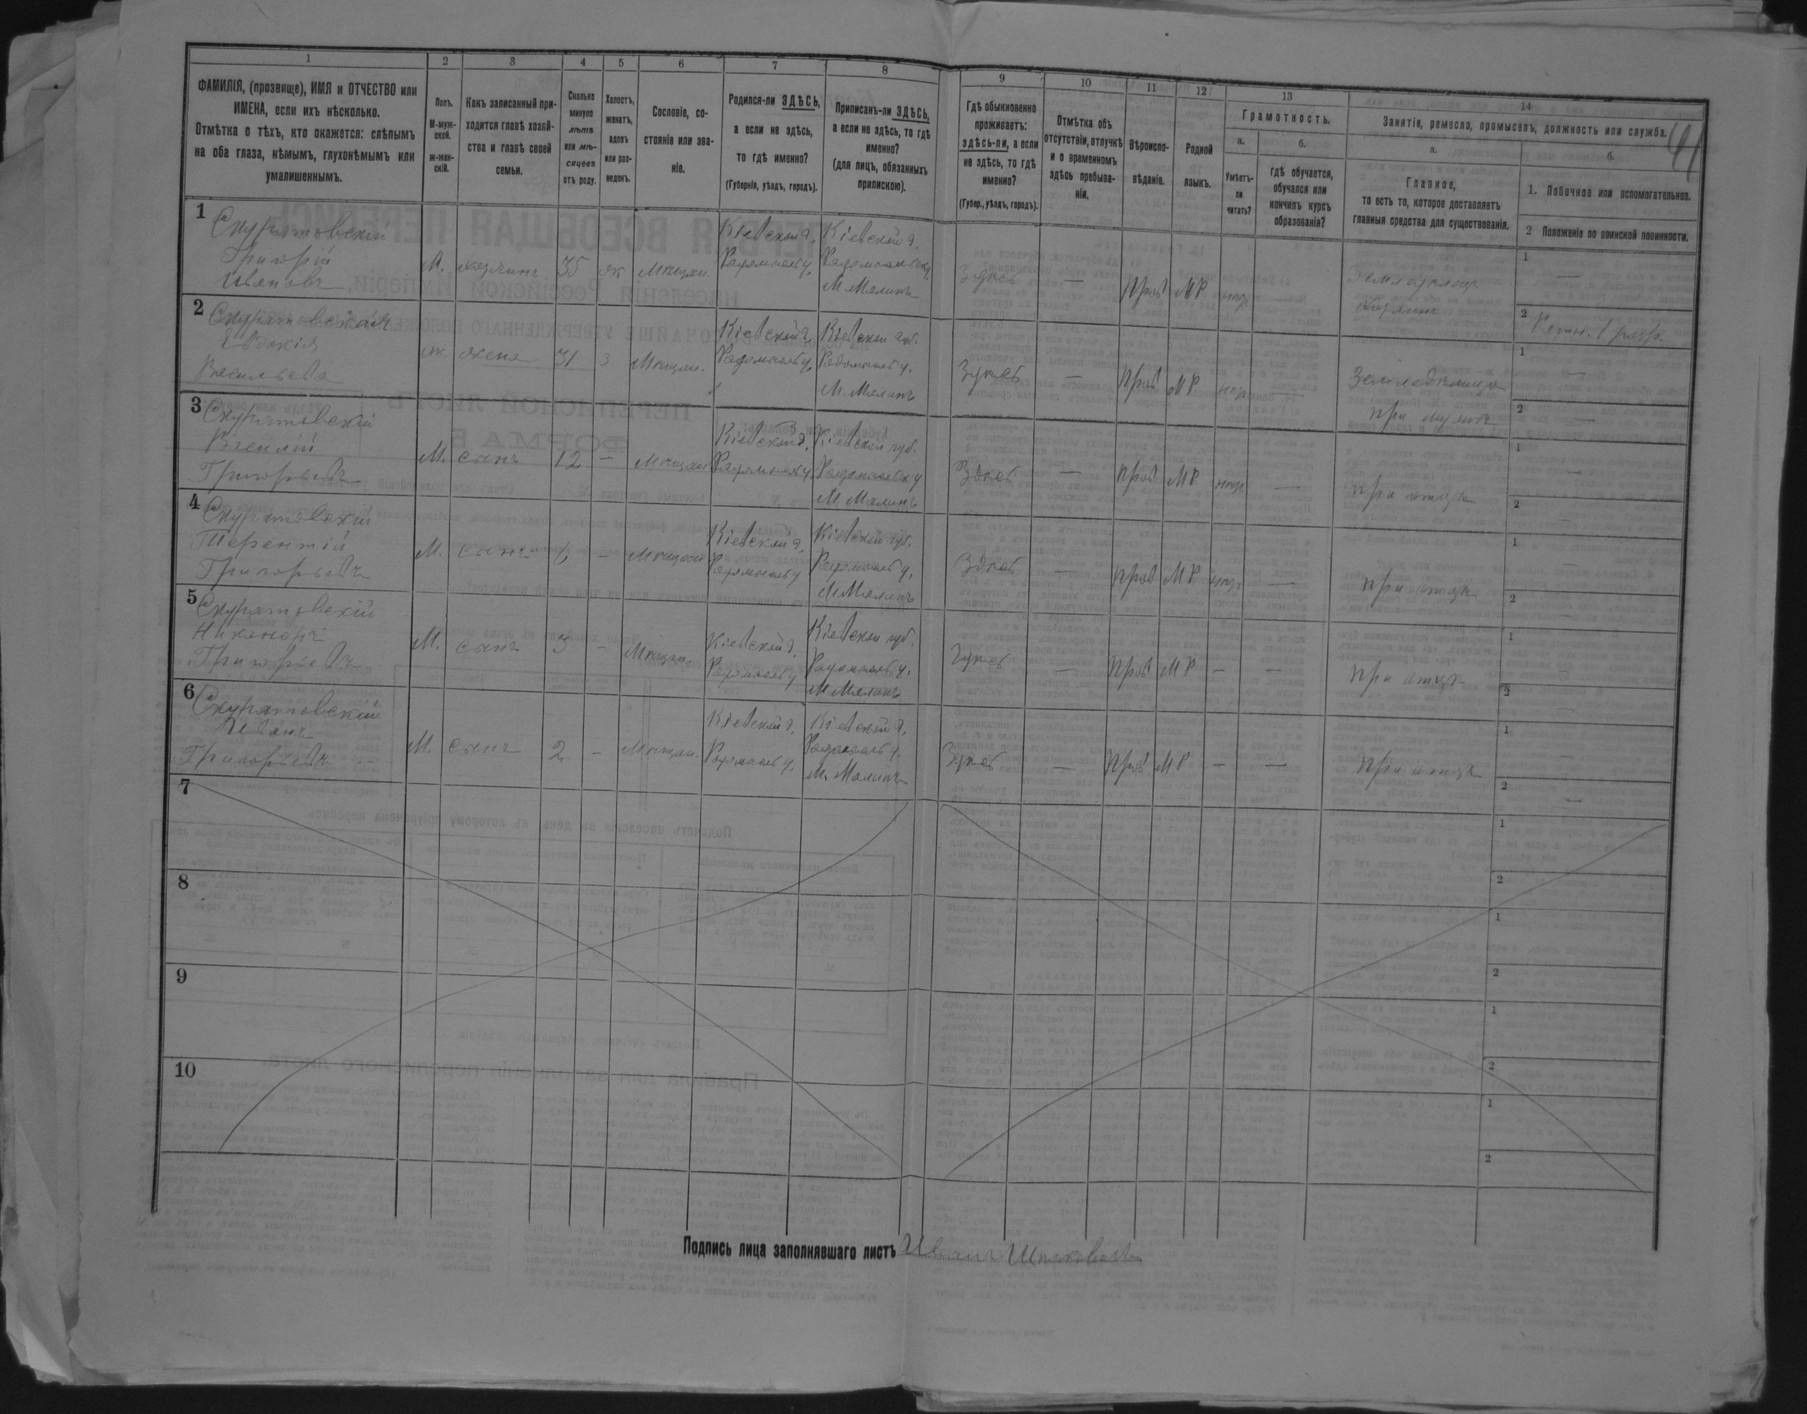 1 2 3 4 5 6 7 8 9 10 11 12 13 14
ФАМИЛІЯ, (прозвище), ИМЯ и ОТЧЕСТВО или
ИМЕНА, если ихъ нѣсколько.
Отмѣтка о тѣхъ, кто окажется: слѣпымъ
на оба глаза, нѣмымъ, глухонѣмымъ или
умалишеннымъ.
Полъ.
М-муж-
ской.
ж-жен-
скій.
Какъ записанный при-
ходится главѣ хозяй-
ства и главѣ своей
семьи.
Сколько
минуло
лѣтъ
или мѣ-
сяцевъ
отъ роду.
Холостъ,
женатъ,
вдовъ
или раз-
веденъ.
Сословіе, со-
стояніе или зва-
ніе.
Родился-ли ЗДѢСЬ,
а если не здѣсь,
то гдѣ именно?
(Губернія, уѣздъ, городъ).
Приписанъ-ли ЗДѢСЬ,
а если не здѣсь, то гдѣ
именно?
(для лицъ, обязанныхъ
припискою).
Гдѣ обыкновенно
проживаетъ:
здѣсь-ли, а если
не здѣсь, то гдѣ
именно?
(Губер., уѣздъ, городъ).
Отмѣтка объ
отсутствіи, отлучкѣ
и о временномъ
здѣсь пребыва-
ніи.
Вѣроиспо-
вѣданіе.
Родной
языкъ.
Грамотность.
а.
Умѣетъ-
ли
читать?
б.
Гдѣ обучается,
обучался или
кончилъ курсъ
образованія?
Занятіе, ремесло, промыселъ, должность или служба.
41
а.
Главное,
то есть то, которое доставляетъ
главныя средства для существованія.
б.
1. Побочное или вспомогательное.
2 Положеніе по воинской повинности.
1
Скуратовскій
Григорій
Ивановъ
М. хозяинъ 35 ж Мѣщан.
Кіевской г.
Радомысль у.
Кіевской г.
Радомысль у.
М. Малинъ
Здѣсь — Прав МР нѣт —
Земледѣлецъ
хозяинъ
1 —
2 Ратн. 1 разр.
2
Скуратовская
Евдокія
Васильева
ж. жена 31 з Мѣщан.
Кіевской г.
Радомысль у.
Кіевской губ.
Радомысль у.
М. Малинъ
Здѣсь — Прав МР нѣт —
Земледѣлица
при мужѣ
1 —
2 —
3
Скуратовскій
Василій
Григорьевъ
М. сынъ 12 — Мѣщан.
Кіевской г.
Радомысль у.
Кіевской губ.
Радомысль у
М. Малинъ
Здѣсь — Прав МР нѣт —
При отцѣ
1 —
2 —
4
Скуратовскій
Терентій
Григорьевъ
М. сынъ — Мѣщан.
Кіевской г.
Радомысль у
Кіевской губ.
Радомысль у.
М. Малинъ
Здѣсь — Прав МР нѣт —
При отцѣ
1 —
2 —
5
Скуратовскій
Никаноръ
Григорьевъ
М. сынъ — Мѣщан.
Кіевской г.
Радомысль у
Кіевской губ.
Радомысль у.
М. Малинъ
Здѣсь — Прав МР — —
При отцѣ
1 —
2 —
6
Скуратовскій
Иванъ
Григорьевъ
М. сынъ 2 — Мѣщан.
Кіевской г.
Радомысль у.
Кіевской г.
Радомысль у.
М. Малинъ
Здѣсь — Прав МР — —
При отцѣ
1 —
2 —
7
1
2
8
1
2
9
1
2
10
1
2
Подпись лица заполнявшаго листъ Иванъ